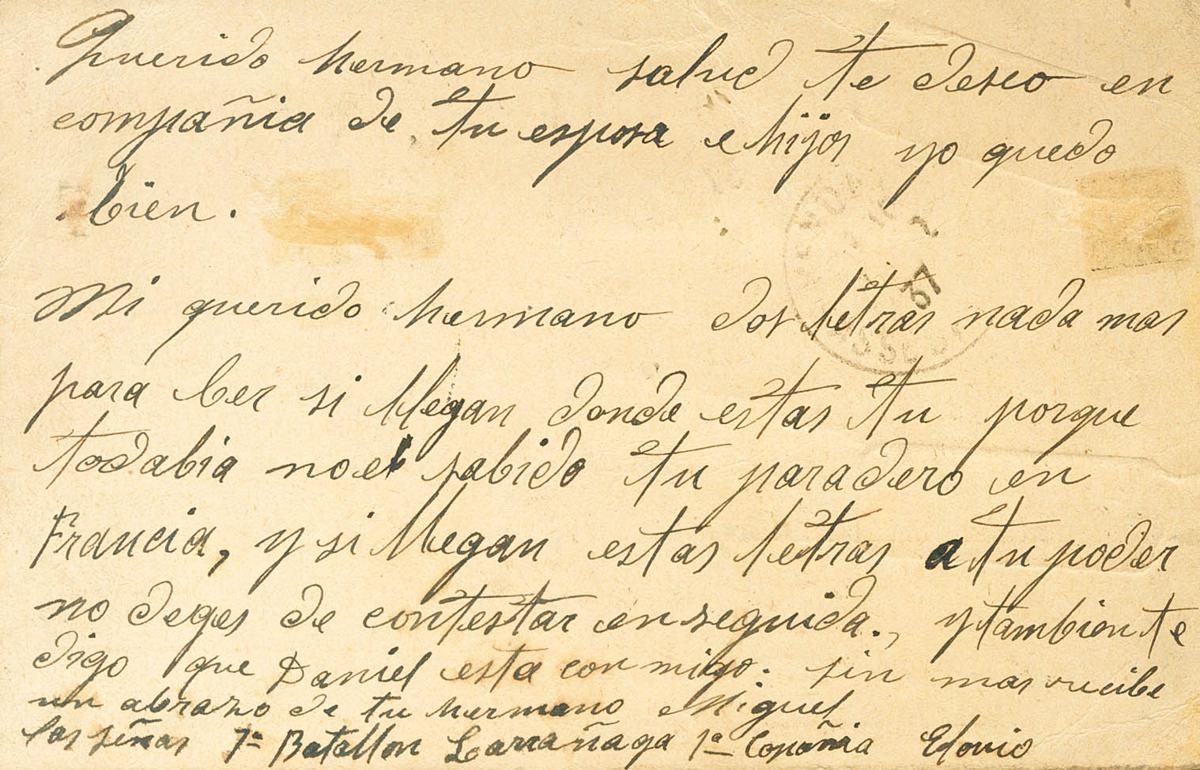 Querido hermano salud te deseo en
compañia de tu esposa e hijos yo quedo
bien.
Mi querido hermano dos letras nada mas
para ber si llegan donde estas tu porque
todabia no e sabido tu paradero en
Francia, y si llegan estas letras a tu poder
no deges de contestar enseguida., y tambien te
digo que Daniel esta con migo. sin mas recibe
un abrazo de tu hermano Miguel
las señas 7º Batallon Larrañaga 1ª Conpañia
37